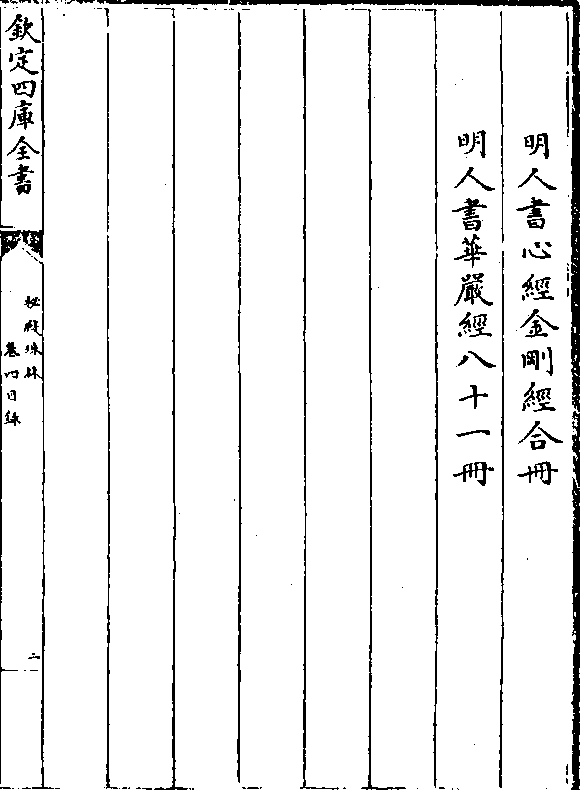 明人書心經金剛經合冊
明人書華嚴經八十一冊
欽定四庫全書
秘殿珠林
卷四目錄
二